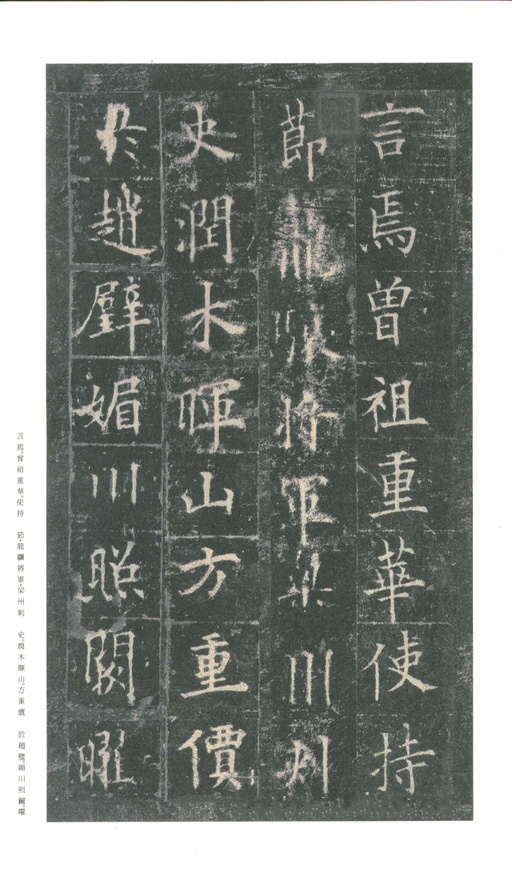 言焉曾祖重華使持
節龍驤將軍梁州刺
史潤木暉山方重價
於趙璧媚川照闕曜
言焉。曾祖重華。使持 節・龍驤將軍・梁州刺 史。潤木暉山。方重價 於趙璧。媚川照闕。曜